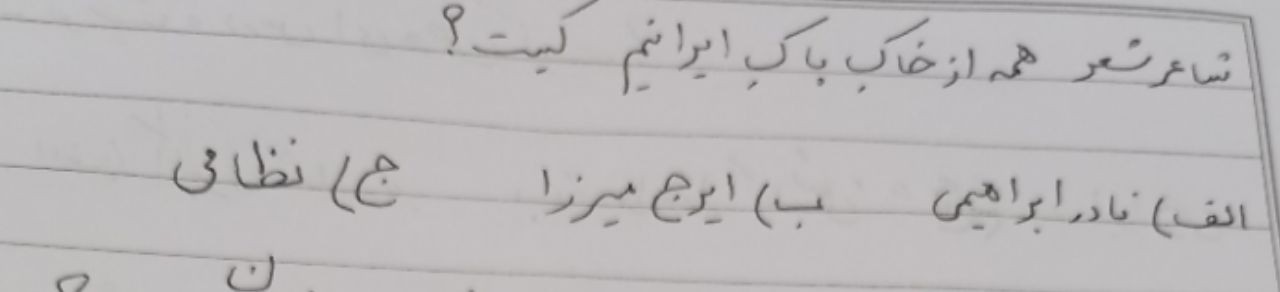 شاعر شعر همه از خاک پاک ایرانیم کیست؟
الف) نادر ابراهیمی ب) ایرج میرزا ج) نظامی